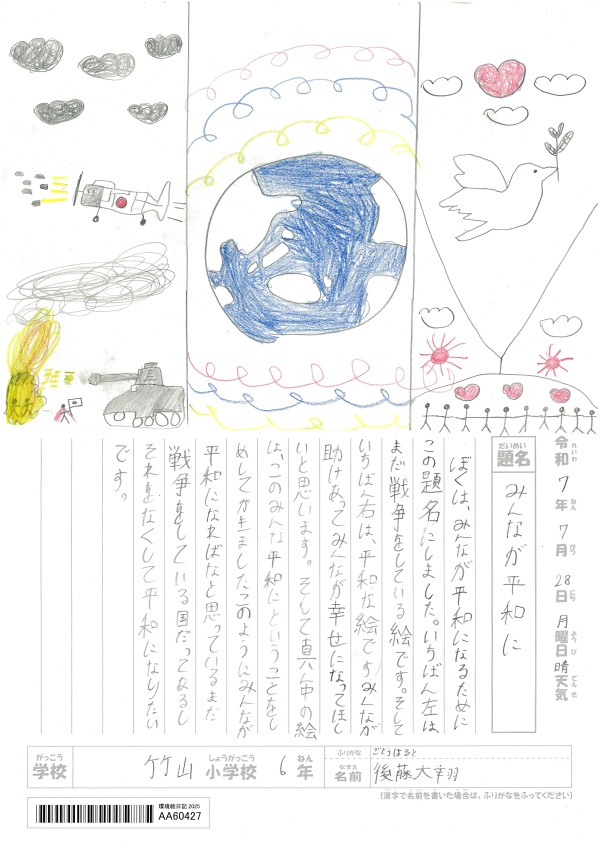 令和7年7月28日月曜日晴天気
れいわ ねん がつ にち ようび てんき
だいめい
題名
みんなが平和に
ぼくは、みんなが平和になるために
この題名にしました。いちばん左は、
まだ戦争をしている絵です。そして
いちばん右は、平和な絵ですみんなが
助けあってみんなが幸せになってほし
いと思います。そして真ん中の絵
は、このみんな平和にということをし
めしてかきましたこのようにみんなが
平和になればなと思っているまだ
戦争をしている国だってあるし
それをなくして平和になりたい
です。
がっこう
学校
竹山
しょうがっこう
小学校
6
ねん
年
ふりがな
ごとうはると
なまえ
名前
後藤大翔
(漢字で名前を書いた場合は、ふりがなをふってください)
環境絵日記 2025
AA60427